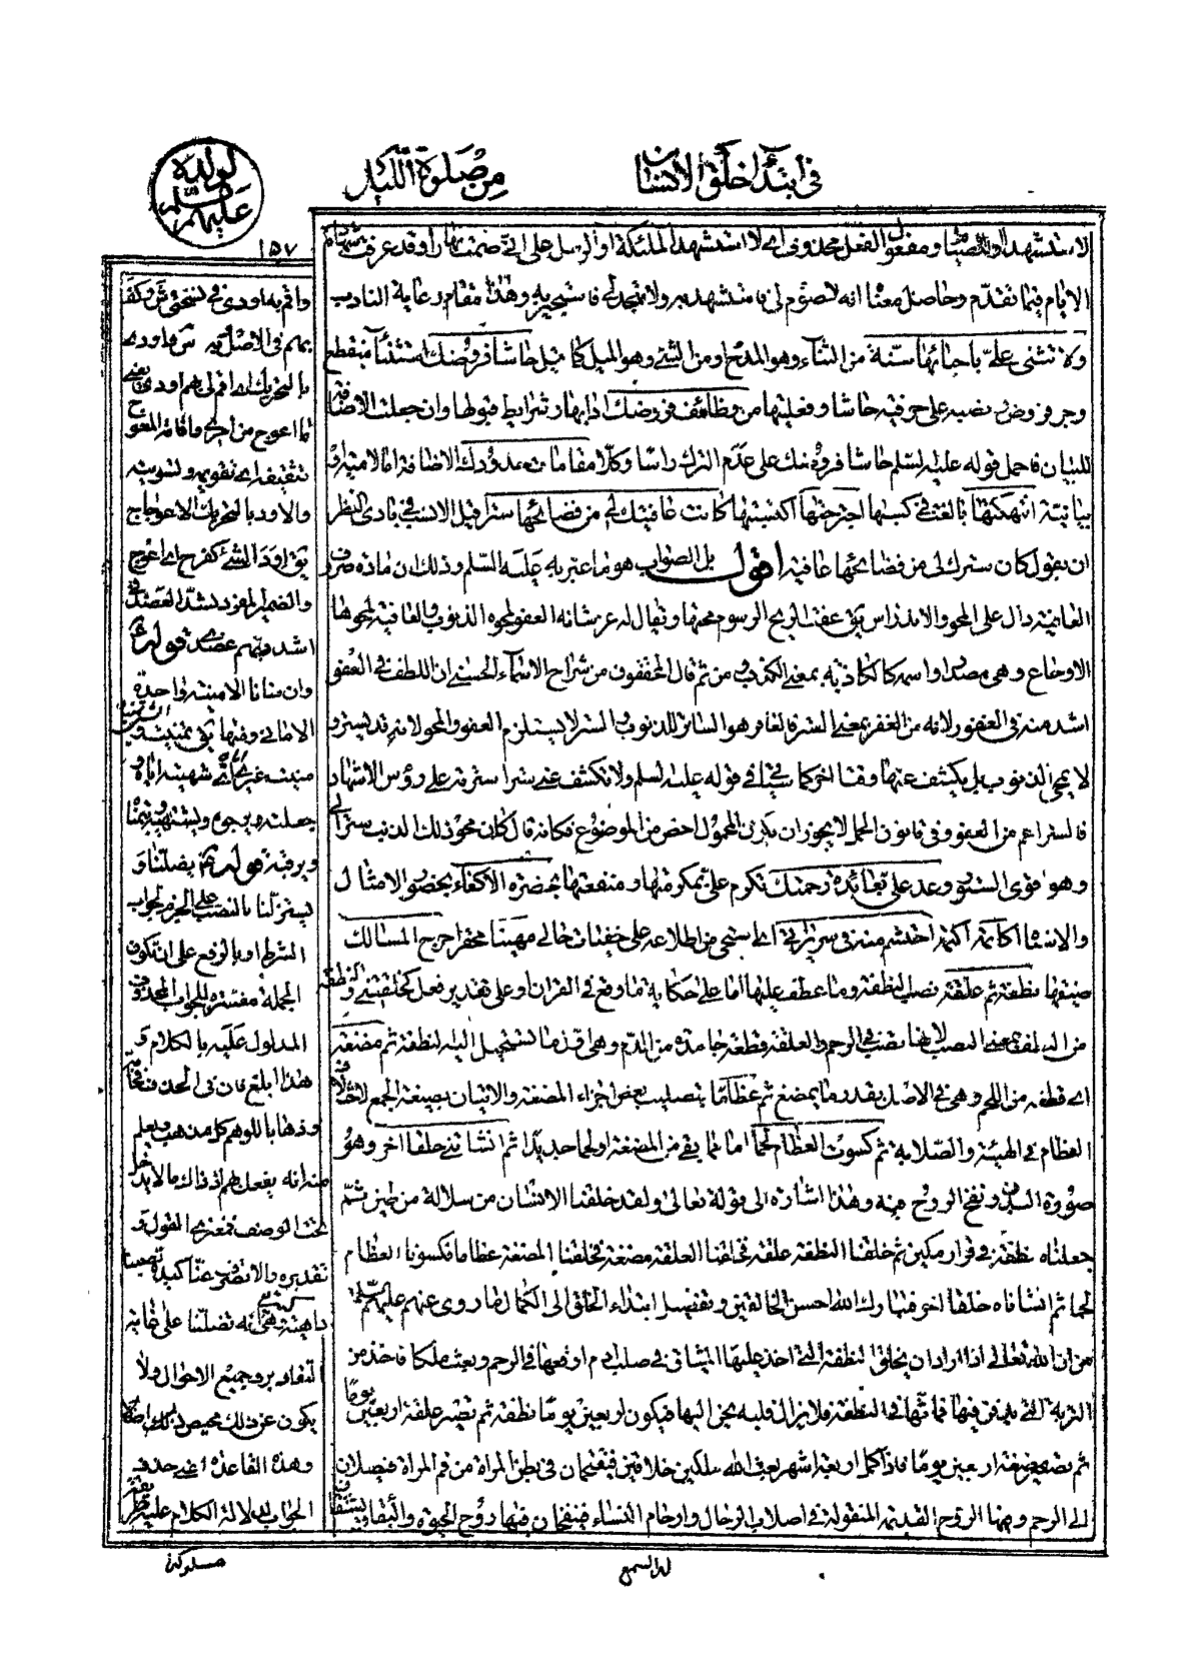 في ابتداء خلق الانسان
من صلوة الليل
لولديه عليهم السلم
١٥٧
لا استشهد او مفعول الفعل محذوف اي لا استشهد الملئكة او الرسل على اني صمت نهارا وقد عرف شهادة
الايام فيما تقدم وحاصل معناه انه لا صوم لي فاستشهد به ولا تهجد لي فاستجير به وهذا مقام رعاية النادب
ولا تثنى علي باحيائها سنة من الثناء وهو المدح او من الثني وهو الميل كما قيل حاشا فروضك استثناء منقطع
وجر فروض او نصبه على حرفية حاشا وفعليتها من وظائف فروضك ادابها وشرايط قبولها وان جعلت الاضافة
للبيان فاحمل قوله عليه السلم حاشا فروضك على عدم الترك راسا وكلا مقامات حدودك الاضافة اما لامية او
بيانية انتهكتها بالغت في كسبها اجترحتها اكتسبتها كانت عافيتك لي من فضائحها سترا قيل الانسب في بادى النظر
ان يقول كان سترك لي من فضائحها عافية اقول بل الصواب هو ما عبر به عليه السلم وذلك ان مادة حروف
العافية دال على المحو والاندراس يق عفت الريح الرسوم محتها ويقال له عز شانه العفو لمحوه الذنوب والعافية لمحوها
الاوجاع وهي مصدر او اسم كالكاذبة بمعنى الكذب ومن ثم قال المحققون من شراح الاسماء الحسنى ان اللطف في العفو
اشد منه في الغفور لانه من الغفر بمعنى الستر فالغافر هو الساتر للذنوب والستر لا يستلزم العفو والمحو لانه قد يستر و
لا يمحى الذنوب بل يكشف عنها وقتا اخر كما سيجئ في قوله عليه السلم ولا تكشف عني سترا سترته على رؤس الاشهاد
فالستر اعم من العفو وفي قانون الحمل لا يجوز ان يكون المحمول اخص من الموضوع فكانه قال كان محو ذلك الذنب سترا لي
وهو اقوى الستر وعد علي بعائدة رحمتك تكرم علي بمكرمتها ومنفعتها بحضرة الاكفاء بحضور الامثال
والاشباه اكاتمه اكتمه احتشم منه في سريراته اي يستحي من اطلاعه على خفيات حالي مهينا محقرا حرج المسالك
ضيقها نطفة ثم علقة نصب النطفة وما عطف عليها اما على حكاية ما وقع في القران او على تقدير فعل كخلقتني والنطفة
من النطف بمعنى الصب لانها تصب في الرحم والعلقة قطعة جامدة من الدم وهي اقذر ما تستحيل اليه النطفة ثم مضغة
اي قطعة من اللحم وهي في الاصل بقدر ما يمضغ ثم عظاما بتصليب بعض اجزاء المضغة والاتيان بصيغة الجمع لاختلاف
العظام في الهيئة والصلابة ثم كسوت العظام لحما اما مما بقي من المضغة او لحما جديدا ثم انشاتني خلقا اخر وهو
صورة البدن ونفخ الروح فيه وهذا اشارة الى قوله تعالى ولقد خلقنا الانسان من سلالة من طين ثم
جعلناه نطفة في قرار مكين ثم خلقنا النطفة علقة فخلقنا العلقة مضغة فخلقنا المضغة عظاما فكسونا العظام
لحما ثم انشاناه خلقا اخر فتبارك الله احسن الخالقين وتفصيل ابتداء الخلق الى الكمال ما روى عنهم عليهم السلم
من ان الله تعالى اذا اراد ان يخلق النطفة التي اخذ عليها الميثاق في صلب ادم اوقعها في الرحم وبعث ملكا فاخذ من
التربة التي يدفن فيها فماثها في النطفة فلا يزال قلبه يحن اليها فيكون اربعين يوما نطفة ثم تصير علقة اربعين يوما
ثم تصير مضغة اربعين يوما فاذا كمل اربعة اشهر بعث الله ملكين خلاقين فيقتحمان في بطن المراة من فم المراة فيصلان
الى الرحم وفيها الروح القديمة المنقولة في اصلاب الرجال وارحام النساء فينفخان فيها روح الحيوة والبقاء ويشقان
له السمع
واقم به اودي في نسختي ش وكف
بهم في الاصل
بالتحريك اي اقم لي بهم اودي يعني
ما اعوج من امري واقامة المعوج
تثقيفه اي تقويمه وتسويته
والاود بالتحريك الاعوجاج
يق اود الشئ كفرح اي اعوج
والضمير المفرد لشد العضد في
اشدد بهم عضدي قوله
وان منانا الامنية واحدة
الاماني ومنها يق تمنيت
جعلته يرجوه ويشتهيه
ويرقبه قوله يضلنا و
يستزلنا بالنصب على الجزم لجواب
الشرط او بالرفع على ان تكون
الجملة مفسرة للجواب المحذوف
المدلول عليه بالكلام و
هذا ابلغ فان في الحذف
وذهابا للوهم كل مذهب ويعلم
منه انه يفعل بهم اذ ذاك ما لا يدخل
تحت الوصف فمعنى القول و
تقديره والا تصرف عنا كيده
داهية وهي انه تضلنا على غاية
التقادير وجميع الاحوال ولا
يكون عن ذلك محيص
وهذه القاعدة اعني حذف
الجواب لدلالة الكلام عليه
مسلوكة